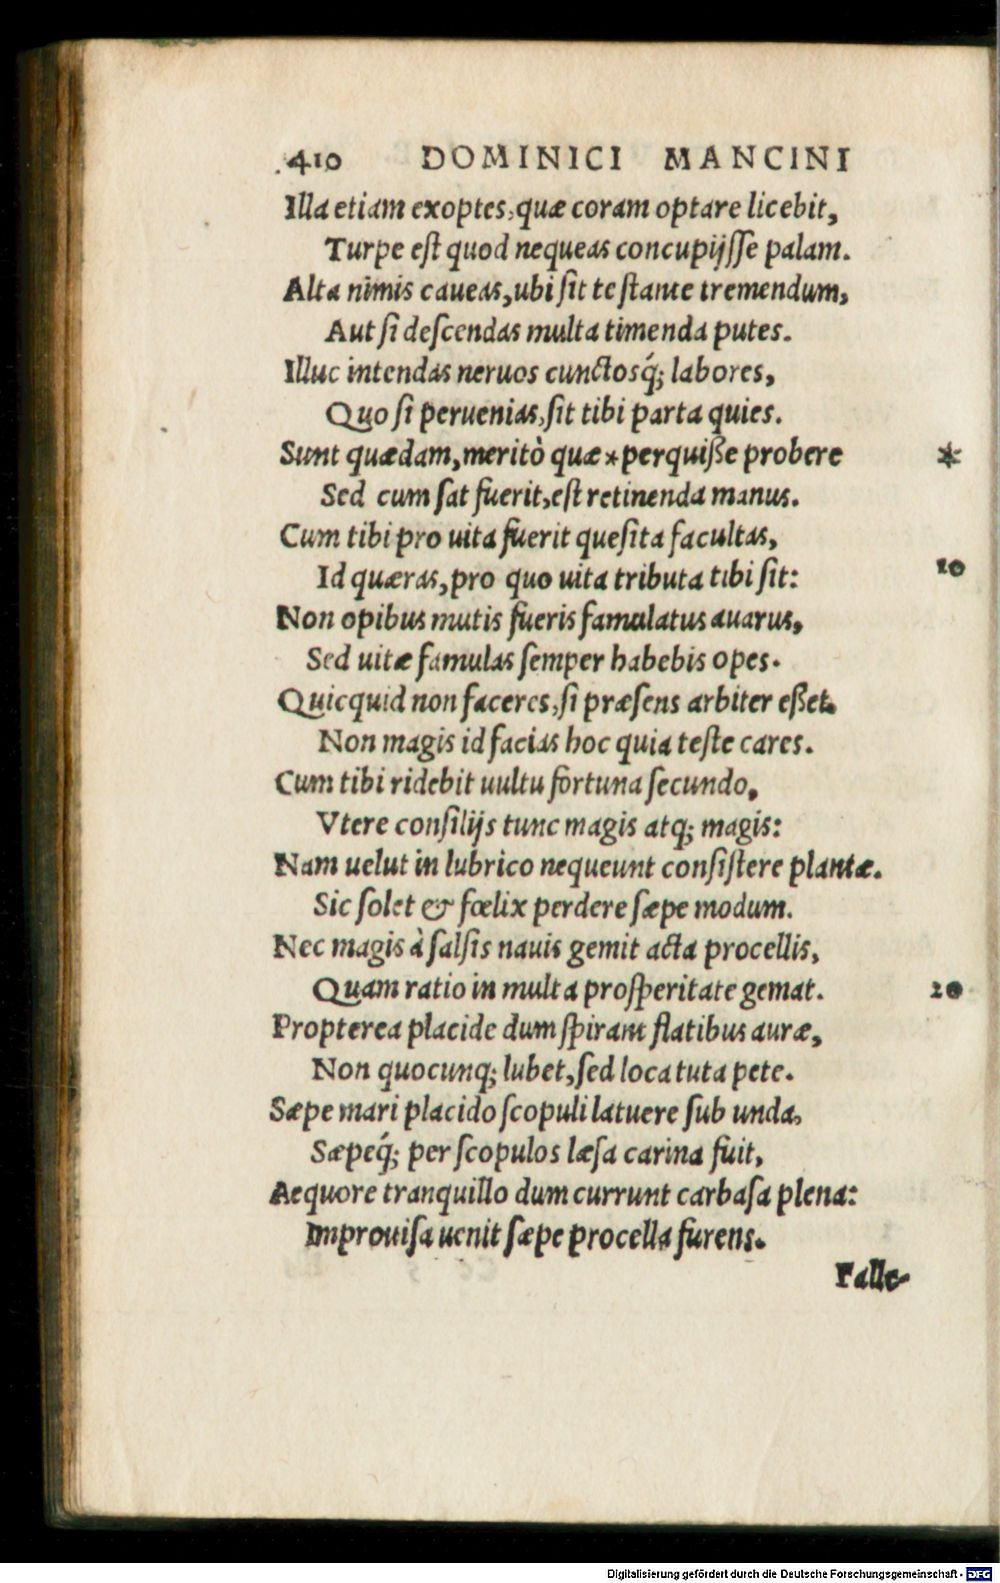 410 DOMINICI MANCINI
Illa etiam exoptes, quæ coram optare licebit,
Turpe eſt quod nequeas concupijſſe palam.
Alta nimis caueas, ubi ſit te ſtante tremendum,
Aut ſi deſcendas multa timenda putes.
Illuc intendas neruos cunctosq́; labores,
Quo ſi peruenias, ſit tibi parta quies.
Sunt quædam, meritò quæ *perquiße probere *
Sed cum ſat fuerit, eſt retinenda manus.
Cum tibi pro uita fuerit queſita facultas,
Id quæras, pro quo uita tributa tibi ſit: 10
Non opibus mutis fueris famulatus auarus,
Sed uitæ famulas ſemper habebis opes.
Quicquid non faceres, ſi præſens arbiter eßet.
Non magis id facias hoc quia teſte cares.
Cum tibi ridebit uultu fortuna ſecundo,
Vtere conſilijs tunc magis atq; magis:
Nam uelut in lubrico nequeunt conſiſtere plantæ.
Sic ſolet & fœlix perdere ſæpe modum.
Nec magis à ſalſis nauis gemit acta procellis,
Quam ratio in multa proſperitate gemat. 20
Propterea placide dum ſpirant flatibus auræ,
Non quocunq; lubet, ſed loca tuta pete.
Sæpe mari placido ſcopuli latuere ſub unda,
Sæpeq́; per ſcopulos læſa carina fuit,
Aequore tranquillo dum currunt carbaſa plena:
Improuiſa uenit ſæpe procella furens.
Falle-
Digitalisierung gefördert durch die Deutsche Forschungsgemeinschaft - DFG